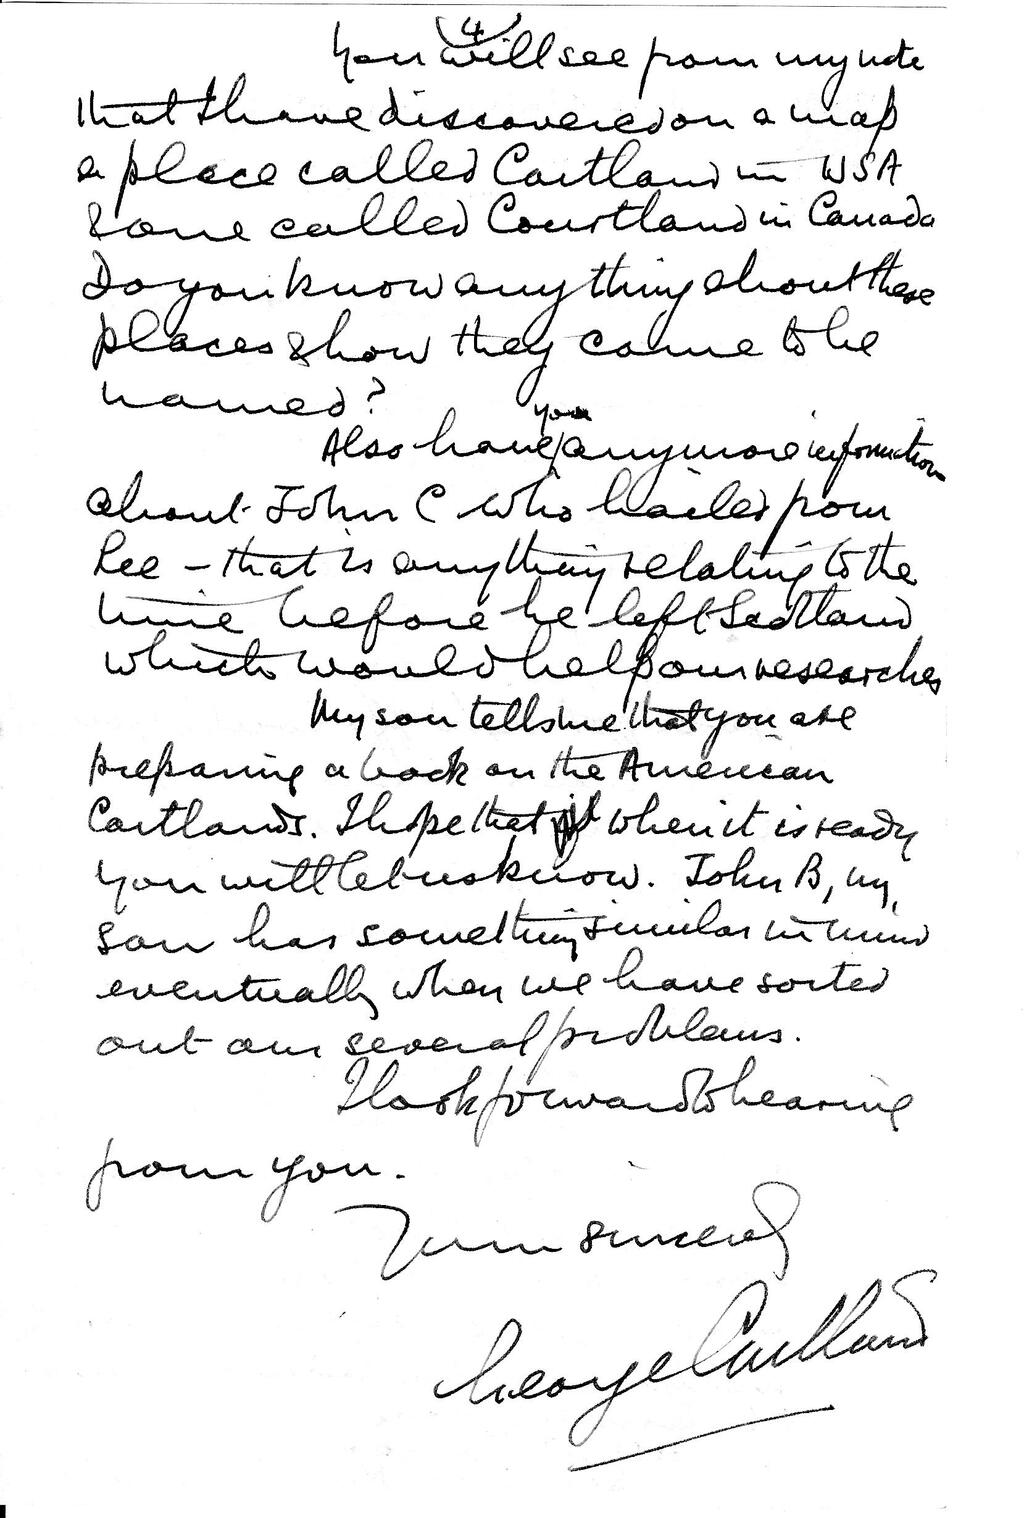 4
You will see from my note
that I have discovered on a map
a place called Cortland in USA
& one called Courtland in Canada
Do you know anything about these
places & how they came to be
named?
Also have you any more information
about John C who hailed from
Lee - that is anything relating to the
time before he left Scotland
which would help our researches
My son tells me that you are
preparing a book on the American
Cartlands. I hope that when it is ready
you will let us know. John B, my
son has something similar in mind
eventually when we have sorted
out our several problems.
I look forward to hearing
from you.
Yours sincerely
George Cartland